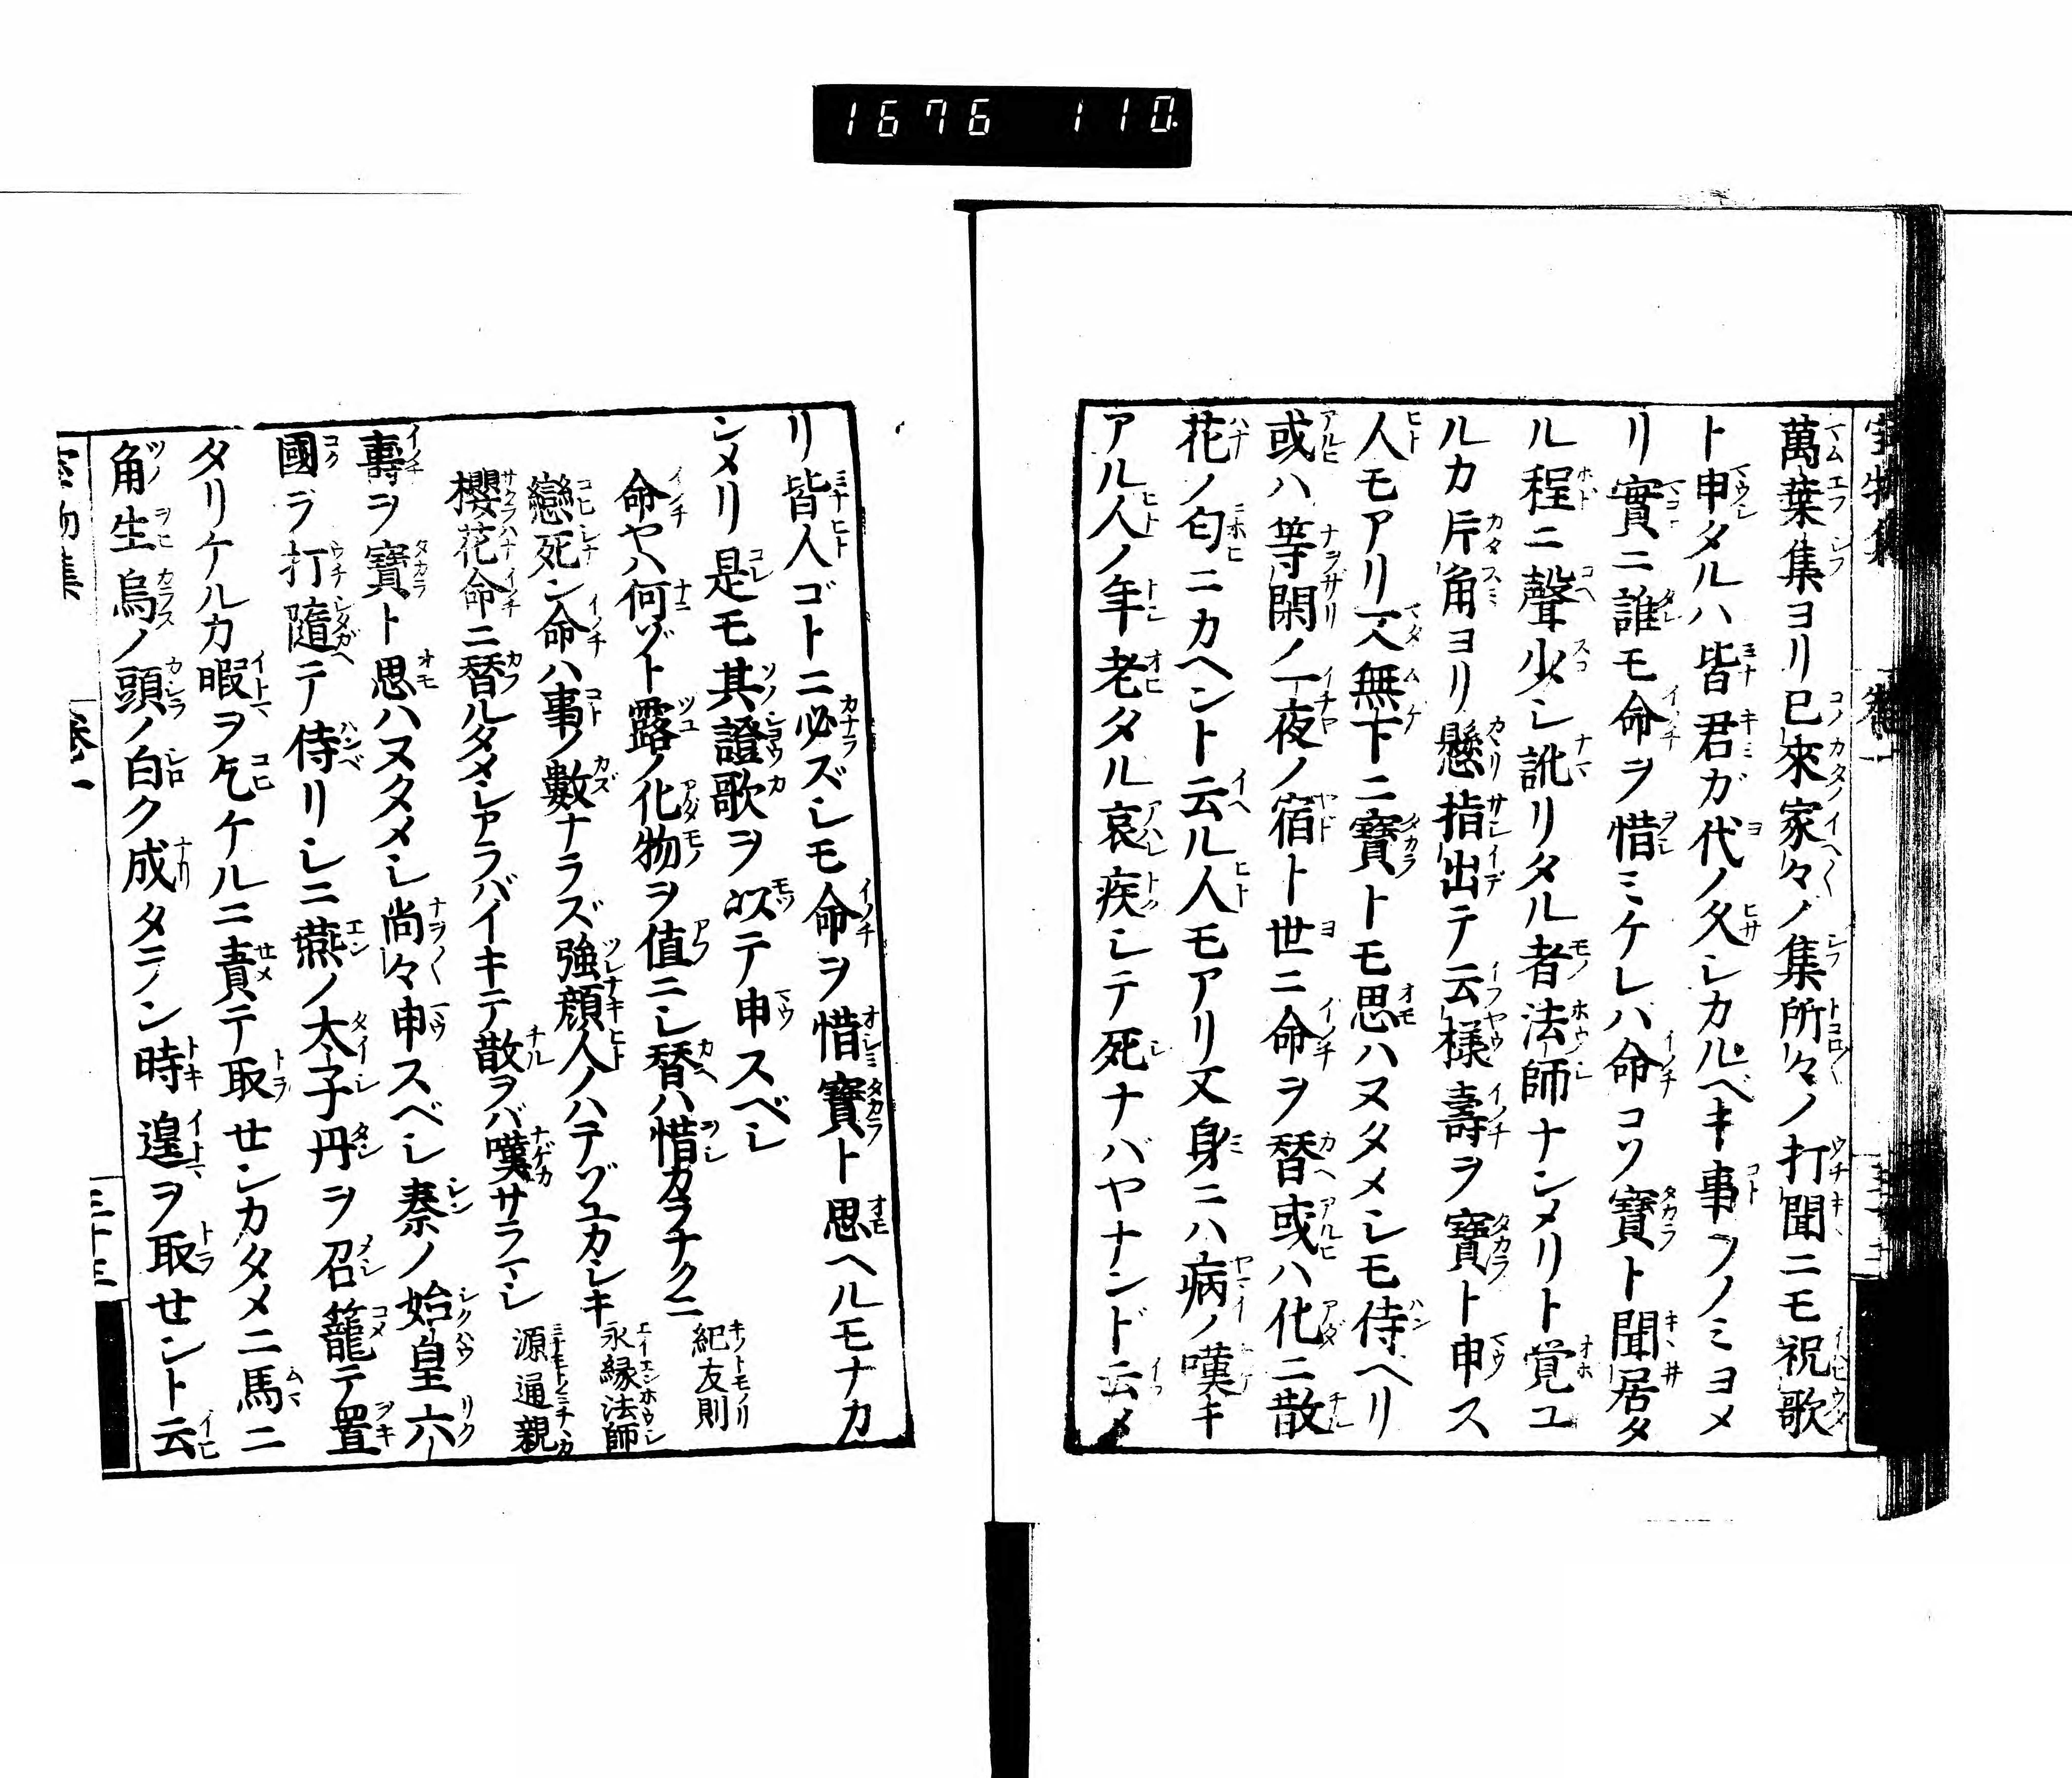 1676 110
萬葉集ヨリ已來家々ノ集所々ノ打聞ニモ祝歌
ト申タルハ皆君ガ代ノ久シカルベキ事ヲノミヨメ
リ實ニ誰モ命ヲ惜ミケレハ命コソ寶ト聞居タ
ル程ニ聲少シ訛リタル者法師ナンメリト覚ユ
ルカ片角ヨリ懸指出テ云様壽ヲ寶ト申ス
人モアリ又無下ニ寶トモ思ハヌタメシモ侍ヘリ
或ハ等閑ノ一夜ノ宿ト世ニ命ヲ替或ハ化ニ散
花ノ匂ニカヘント云ル人モアリ又身ニハ病ノ嘆キ
アル人ノ年老タル哀疾シテ死ナバヤナンド云メ
リ皆人ゴトニ必ズシモ命ヲ惜寶ト思ヘルモナカ
ンメリ是モ其證歌ヲ以テ申スベシ
命ヤハ何ゾト露ノ化物ヲ値ニシ替ハ惜カラナクニ 紀友則
戀死ン命ハ事ノ數ナラズ強顔人ノハテゾユカシキ 永縁法師
櫻花命ニ替ルタメシヤラバイキテ散ヲバ嘆サラマシ 源通親
壽ヲ寶ト思ハヌタメシ尚々申スベシ秦ノ始皇六
國ヲ打隨テ侍リシニ燕ノ太子丹ヲ召籠テ置
タリケルカ暇ヲ乞ケルニ責テ取せンカタメニ馬ニ
角生烏ノ頭ノ白ク成タラン時遑ヲ取せント云
卷一
三十三